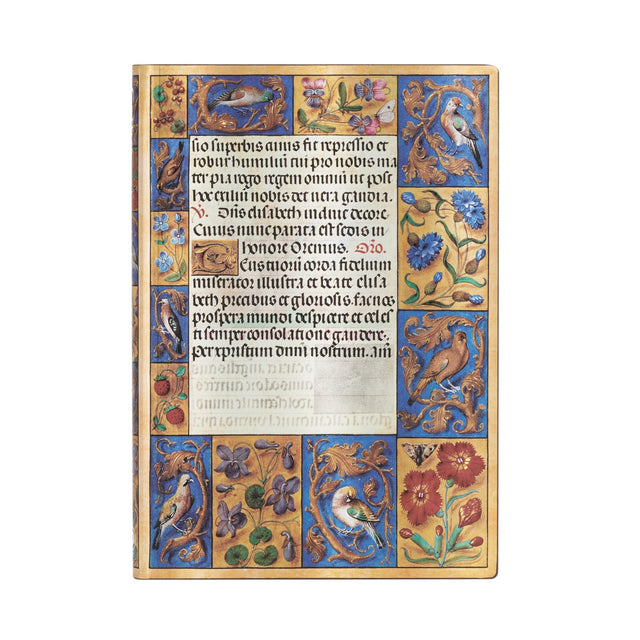 sio superbis cuius fit repressio et
robur humilium qui pro nobis ma
ter pia rogo regem omnium ut post
hoc exilium nobis det vera gaudia.
℣. Diis elisabeth induic decore
Cuius nunc parata est sedis in
honore Oremus. Oro.
Deus tuorum corda fidelium
miserator illustra et beate elisa
beth precibus et gloriosis fac nos
prospera mundi despicere et celes
ti semper consolatione gaudere.
Per xpristum dnm nostrum. am